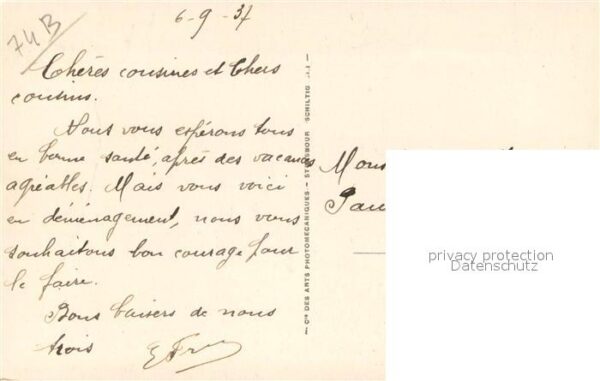 74B
6-9-37
Chères cousines et Chers
cousins.
Nous vous espérons tous
en bonne santé, après des vacances
agréables. Mais vous voici
en déménagement, nous vous
souhaitons bon courage pour
le faire.
Bons baisers de nous
trois
— Cie DES ARTS PHOTOMÉCANIQUES — STRASBOURG-SCHILTIG
privacy protection
Datenschutz